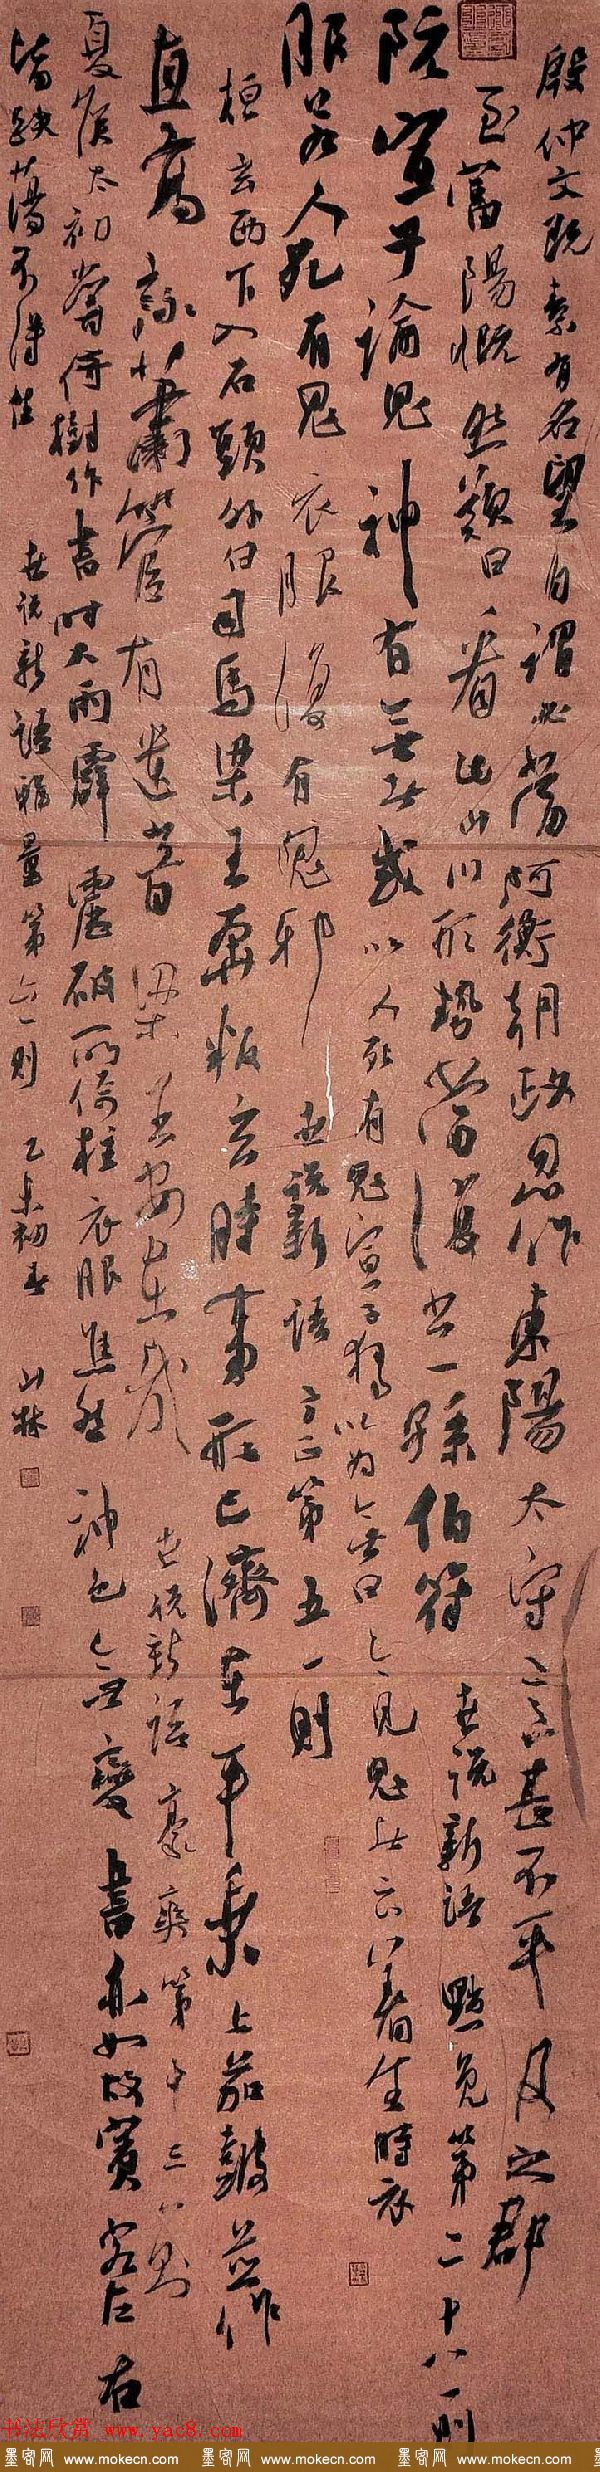 殷仲文既素有名望自謂必當阿衡朝政忽作東陽太守意甚不平及之郡
至富陽慨然歎曰看此山川形勢當復出一孫伯符 世説新語 黜免第二十八一則
阮宣子論鬼神有無者或以人死有鬼宣子獨以為無曰今見鬼者云着生時衣
服若人死有鬼衣服復有鬼邪 世説新語 方正第五一則
桓玄西下入石頭外白司馬梁王奔叛玄時事形已濟在平乘上笳鼓並作
直高詠云簫管有遺音梁王安在哉 世説新語 豪爽第十三一則
夏侯太初嘗倚樹作書時大雨霹靂破所倚柱衣服焦然神色無變書亦如故賓客左右
皆跌蕩不得住 世説新語雅量第六一則 乙未初春 山林
书法欣赏 www.yac8.com
墨客网 www.mokecn.com 墨客网 www.mokecn.com 墨客网 www.mokecn.com